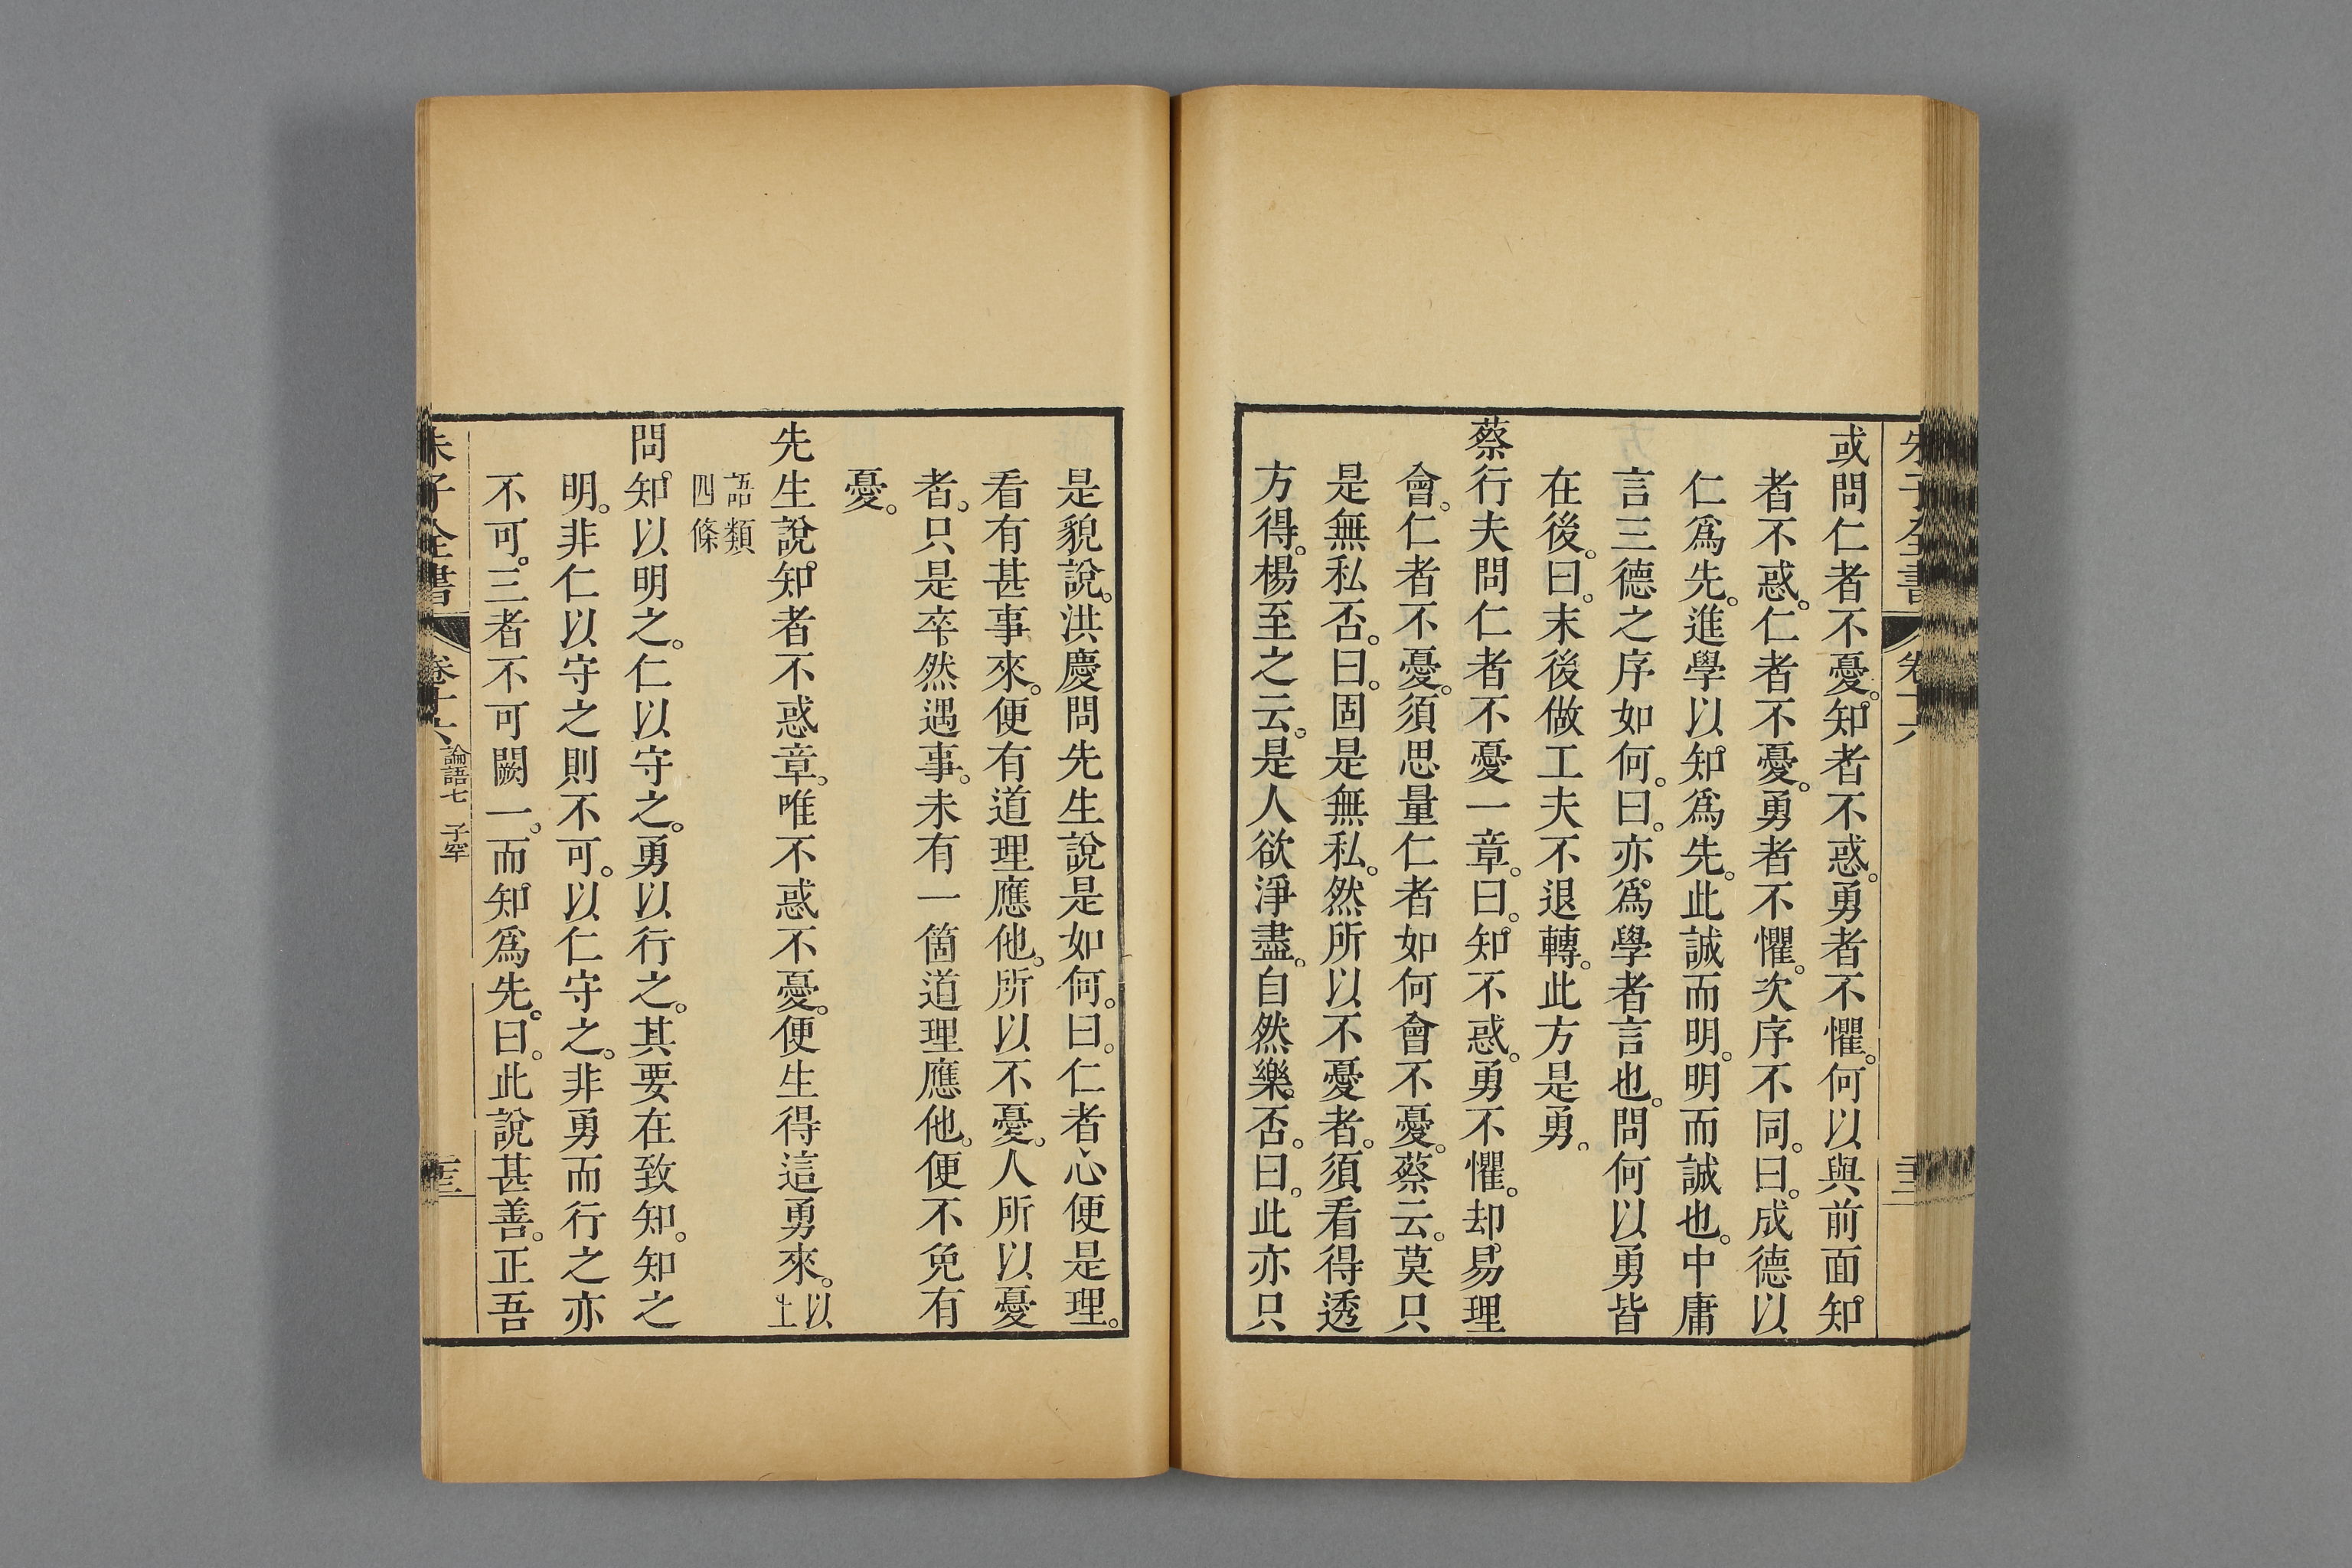 朱子全書 卷十六
或問仁者不憂。知者不惑。勇者不懼。何以與前面知
者不惑。仁者不憂。勇者不懼。次序不同。曰。成德以
仁爲先。進學以知爲先。此誠而明。明而誠也。中庸
言三德之序如何。曰。亦爲學者言也。問何以勇皆
在後。曰。末後做工夫不退轉。此方是勇。
蔡行夫問仁者不憂一章。曰。知不惑。勇不懼。却易理
會。仁者不憂。須思量仁者如何會不憂。蔡云。莫只
是無私否。曰。固是無私。然所以不憂者。須看得透
方得。楊至之云。是人欲淨盡。自然樂否。曰。此亦只
是貌說。洪慶問先生說是如何。曰。仁者心便是理。
看有甚事來。便有道理應他。所以不憂。人所以憂
者。只是卒然遇事。未有一箇道理應他。便不免有
憂。
先生說。知者不惑章。唯不惑不憂。便生得這勇來。以上
語類四條
問。知以明之。仁以守之。勇以行之。其要在致知。知之
明。非仁以守之則不可。以仁守之。非勇而行之亦
不可。三者不可闕一。而知爲先。曰。此說甚善。正吾
朱子全書 卷十六 論語七 子罕